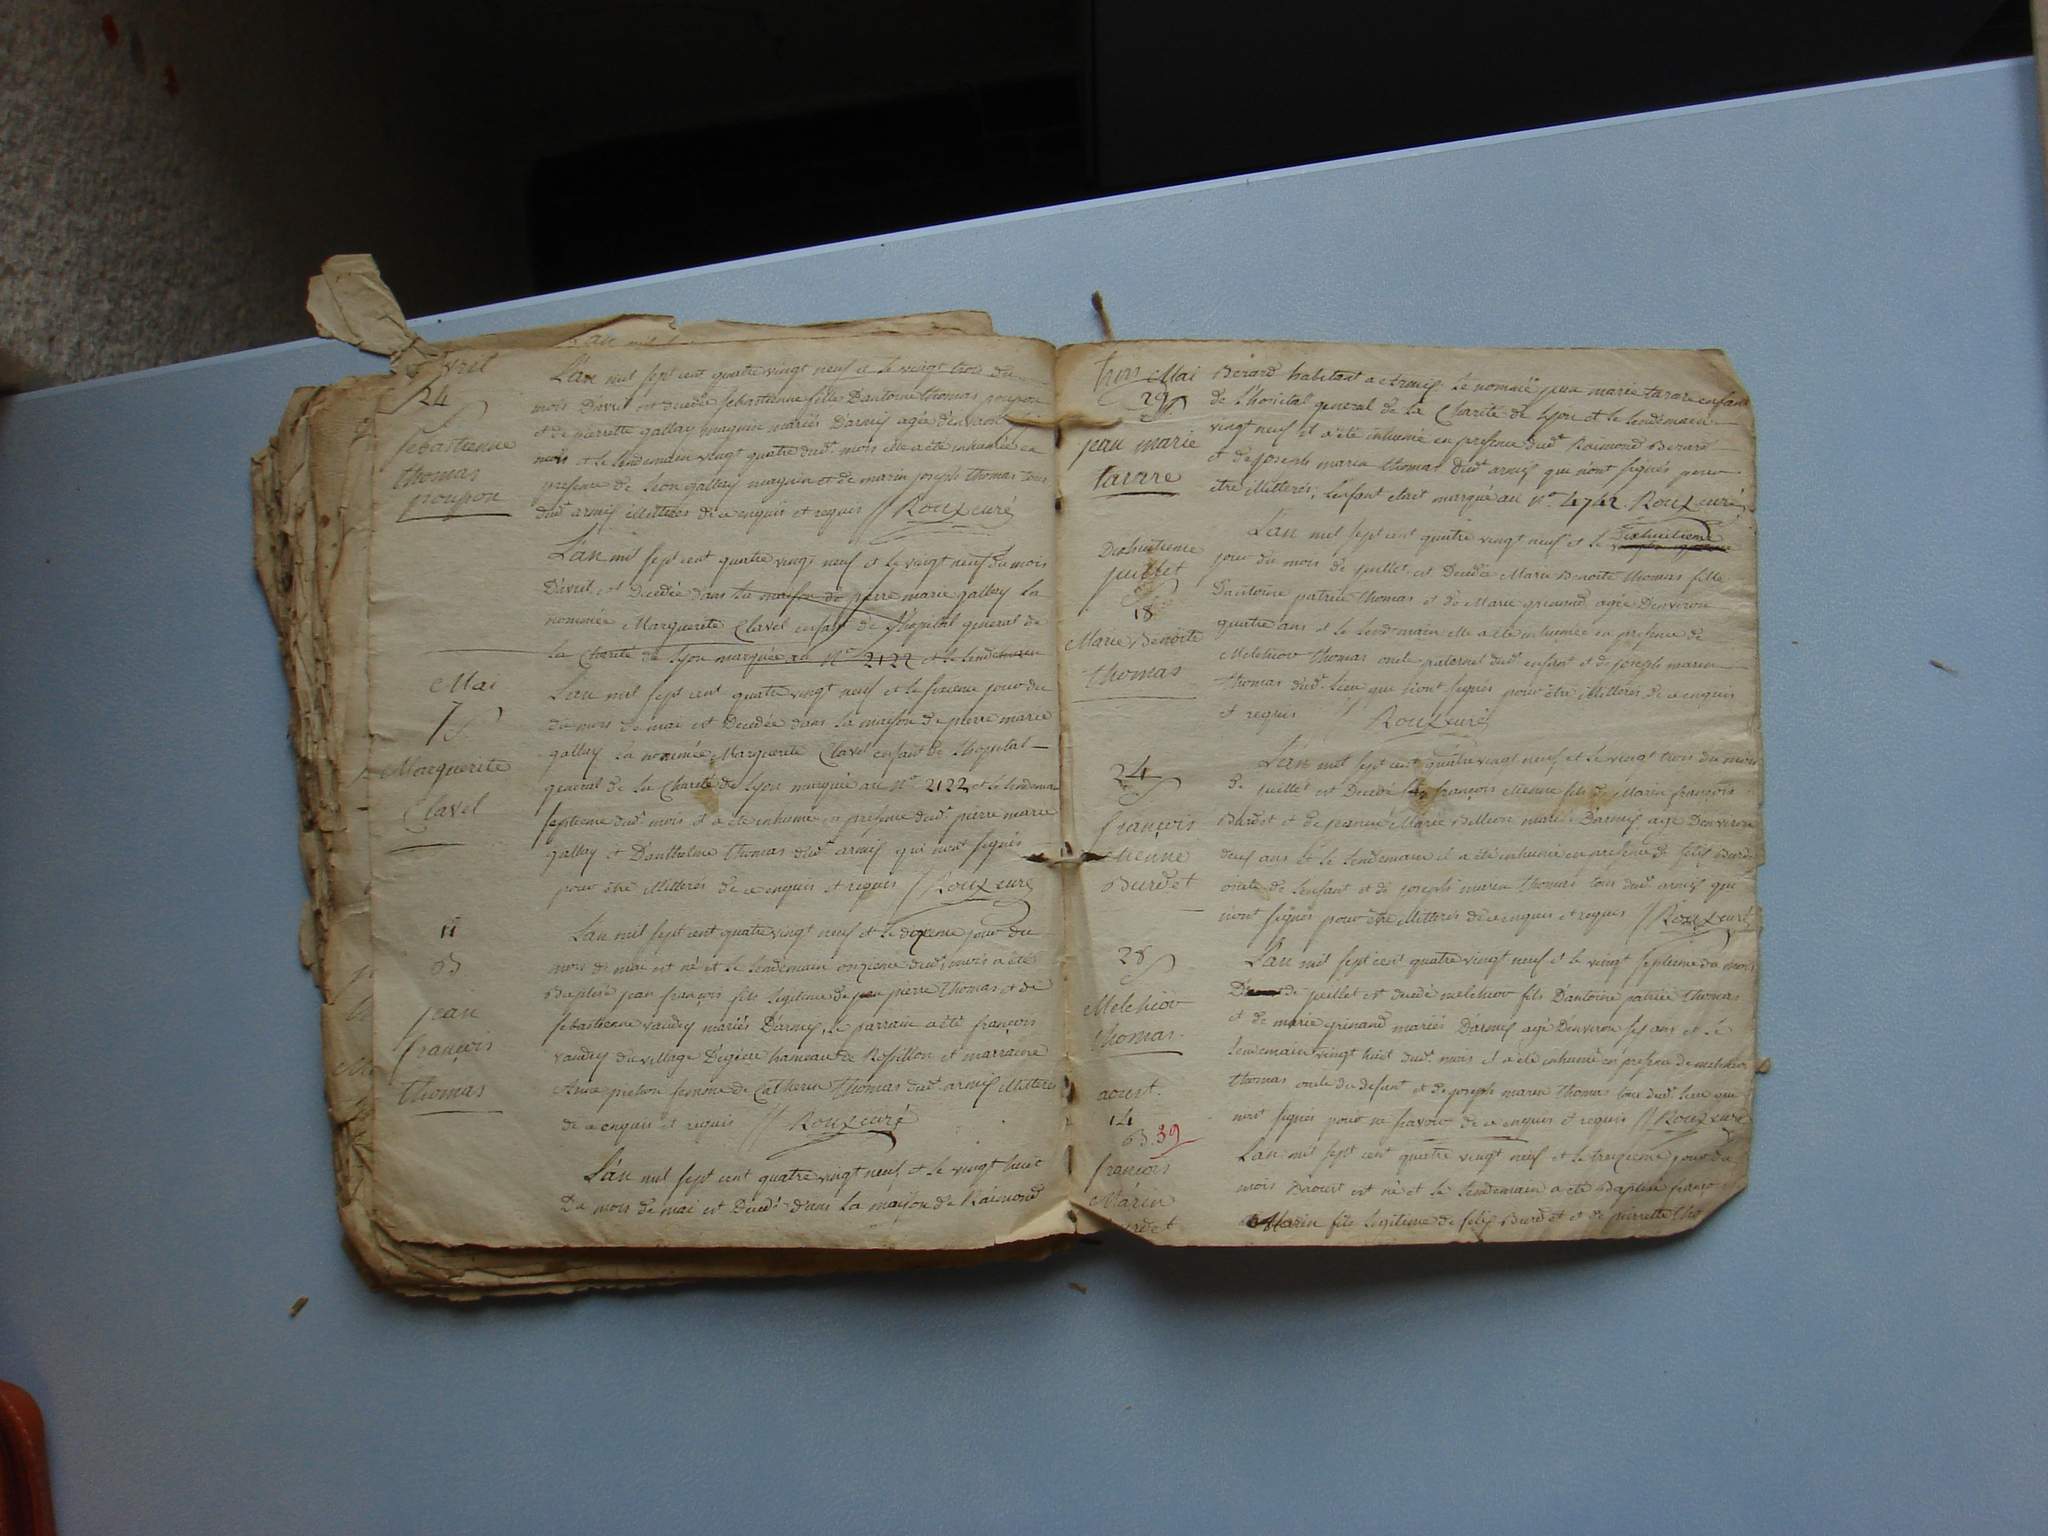 avril
24
Sebastienne
thomas
poupon
L'an mil sept cent quatre vingt neuf et le vingt trois du
mois d'avril est decedée sebastienne fille d'antoine thomas poupon
et de pierrette gallay magnin mariés d'armis agée d'environ
mois et le lendemain vingt quatre dudt mois elle a été inhumée en
presence de leon gallay magnin et de marin joseph thomas tous
dudt armis illitterés de ce enquis et requis // Roux curé
L'an mil sept cent quatre vingt neuf et le vingt neuf du mois
d'avril est decedée dans la maison de pierre marie gallay la
nommée Marguerite Clavel enfant de l'hopital general de
la Charité de lyon marquée au No 2122 et le lendemain
Mai
7
Marguerite
Clavel
L'an mil sept cent quatre vingt neuf et le sixieme jour du
du mois de mai est decedée dans la maison de pierre marie
gallay la nommée Marguerite Clavel enfant de l'hopital
general de la Charité de lyon marquée au No 2122 et le lendemain
septieme dudt mois et a été inhumé en presence dudt pierre marie
gallay et d'anthelme thomas dudt armis qui n'ont signés
pour être illitterés de ce enquis et requis // Roux curé
11
B
jean
françois
thomas
L'an mil sept cent quatre vingt neuf et le dixieme jour du
mois de mai est né et le lendemain onzieme dudt mois a été
Baptisé jean françois fils legitime de jean pierre thomas et de
sebastienne vaudey mariés d'armis, le parrain a été françois
vaudey du village d'egieu hameau de Rossillon et marraine
Anne prelion femme de Catherin thomas dudt armis illitterés
de ce enquis et requis // Roux curé
L'an mil sept cent quatre vingt neuf et le vingt huit
Du mois de mai est decedé dans la maison de Raimond
Mai
29
jean marie
tarare
Berard habitant a armis le nommé jean marie tarare enfant
de l'hopital general de la Charité de lyon et le lendemain
vingt neuf il a été inhumé en presence dudt Raimond Berard
et de joseph marin thomas dudt armis qui n'ont signés pour
etre illitterés, l'enfant etait marqué au No 4742. Roux curé
Dixhuitieme
juillet
18
Marie Benoite
thomas
L'an mil sept cent quatre vingt neuf et le Dixhuitieme
jour du mois de juillet est Decedée Marie Benoite thomas fille
d'antoine patrice thomas et de Marie grinand agée d'environ
quatre ans et le lendemain elle a été inhumée en presence de
Melchior thomas oncle paternel dudt enfant et de joseph marin
thomas dudt lieu qui n'ont signés pour être illitterés de ce enquis
et requis // Roux curé
24
françois
etienne
Burdet
L'an mil sept cent quatre vingt neuf et le vingt trois du mois
de juillet est Decedé françois etienne fils de Marin françois
Burdet et de jeanne Marie Billion mariés d'armis agé d'environ
deux ans et le lendemain il a été inhumé en presence de felix Burdet
oncle de l'enfant et de joseph marin thomas tous dudt armis qui
n'ont signés pour être illitterés de ce enquis et requis // Roux curé
28
Melchior
thomas
L'an mil sept cent quatre vingt neuf et le vingt septieme du mois
de juillet est decedé melchior fils d'antoine patrice thomas
et de marie grinand mariés d'armis agé d'environ six ans et le
lendemain vingt huit dudt mois il a été inhumé en presence de melchior
thomas oncle du defunt et de joseph marin thomas tous dudt lieu qui
n'ont signés pour ne savoir de ce enquis et requis // Roux curé
aoust.
14
B. 39
françois
Marin
Burdet
L'an mil sept cent quatre vingt neuf et le treizieme jour du
mois d'aoust est né et le lendemain a été Baptisé françois
Marin fils legitime de felix Burdet et de pierrette tho